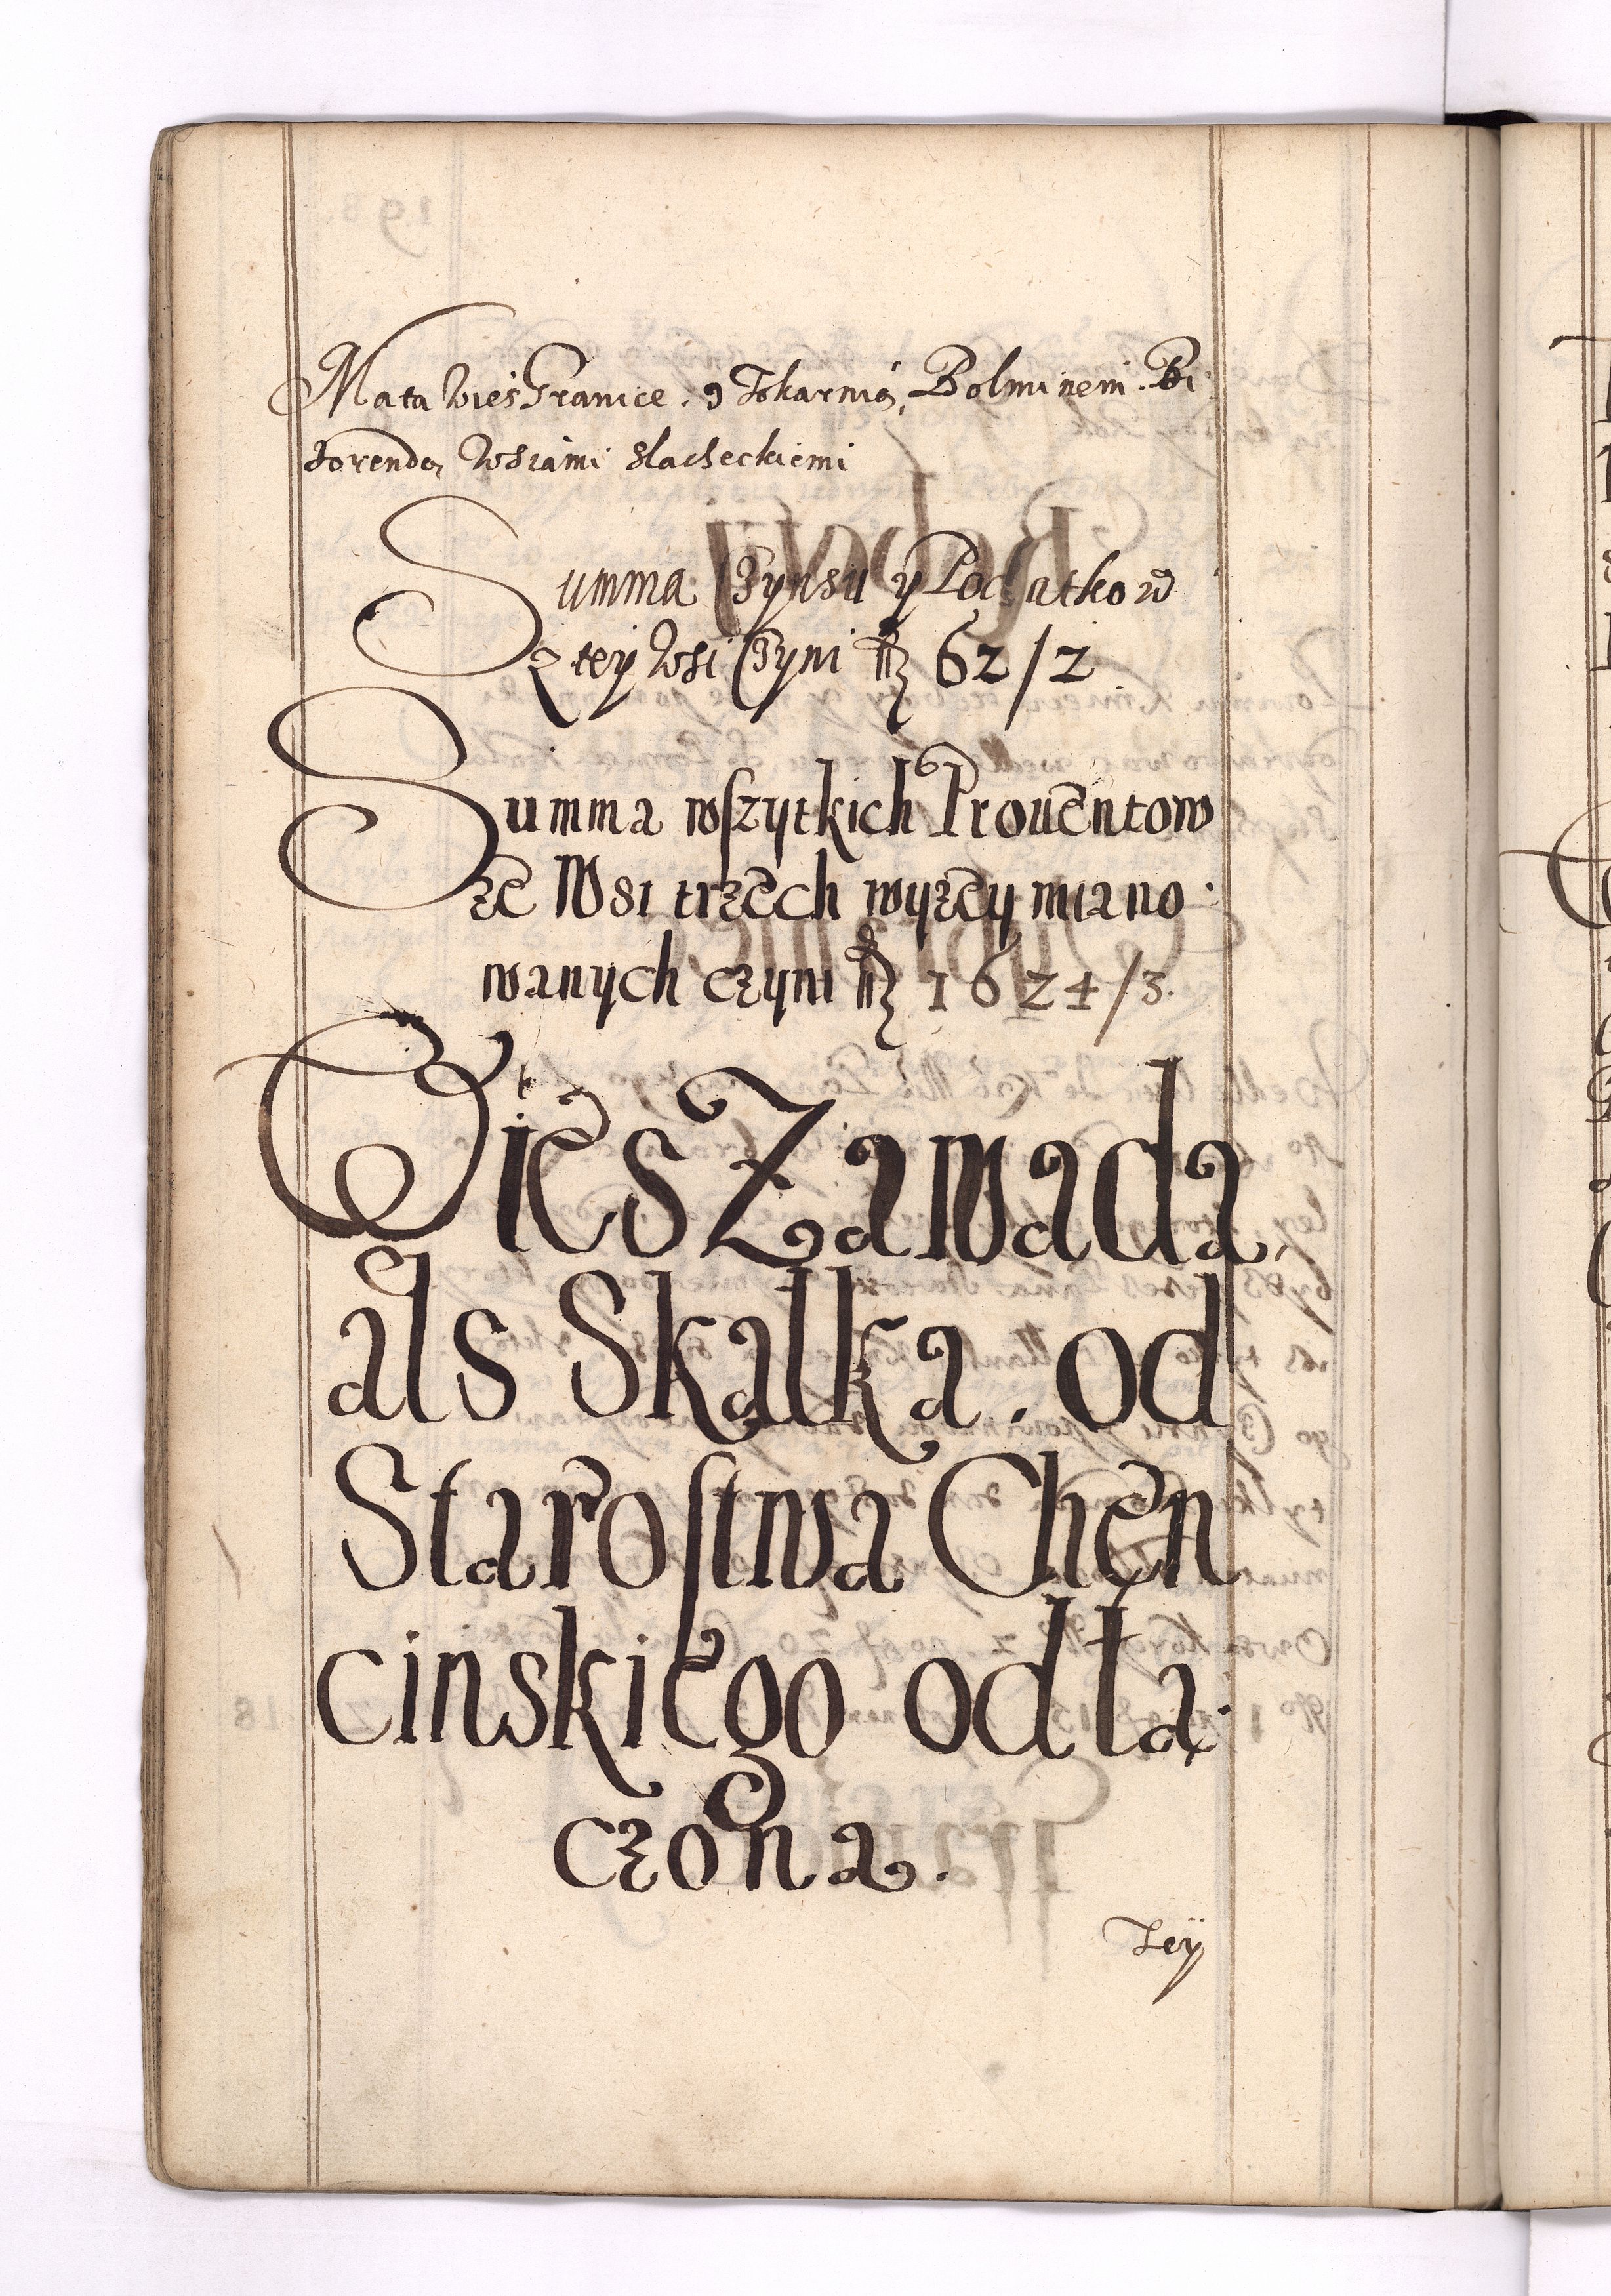 Mata wieś Granice. з Tokarnią, Bolminem. Bi:
torendą wsiami slacheckiemi
Summa Czynsu y Podatkow
z tey wsi Czyni fl 62/2
Summa wszytkich Prouentow
ze Wsi trzech wyzey miano:
wanych czyni fl 1624/3.
Wies Zawada
als Skalka. od
Starostwa Chen
cinskiego odłą:
czona.
Tey